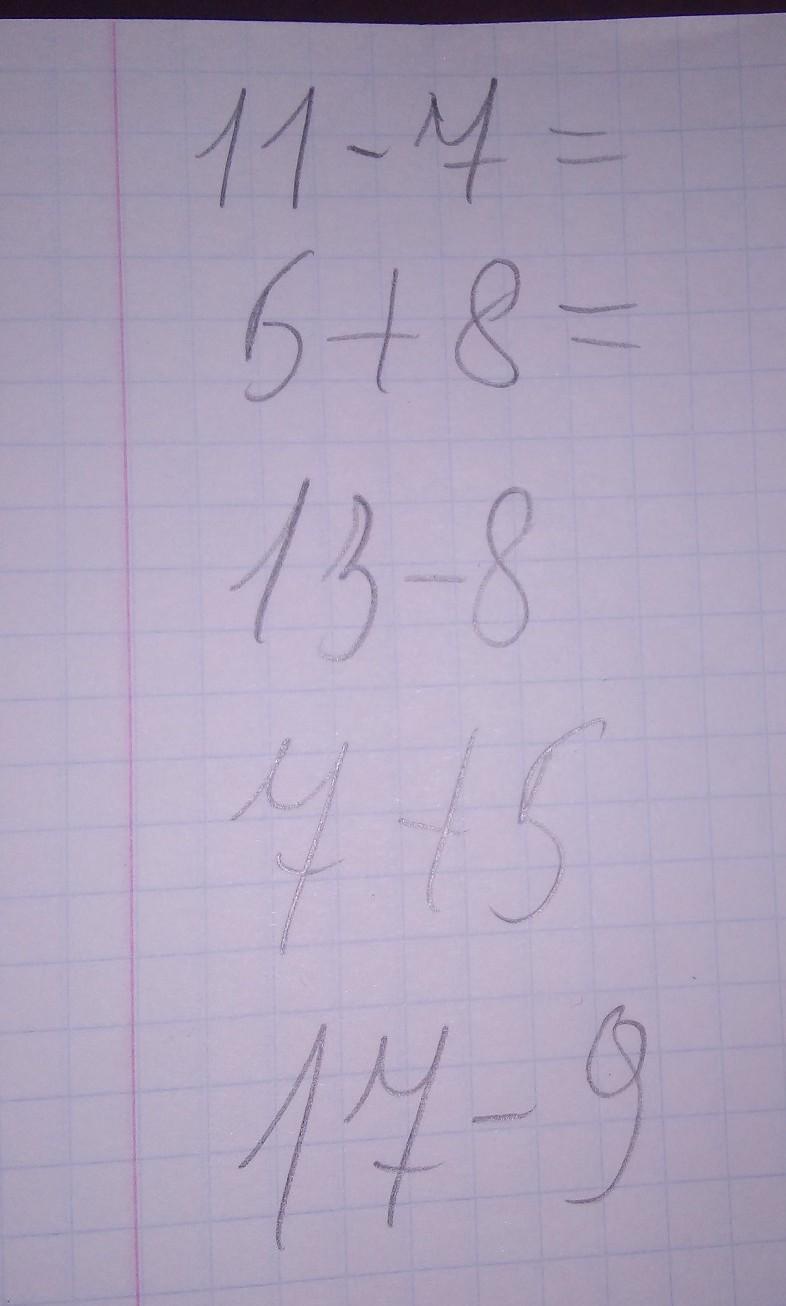 11-7=
5+8=
13-8
7+5
17-9